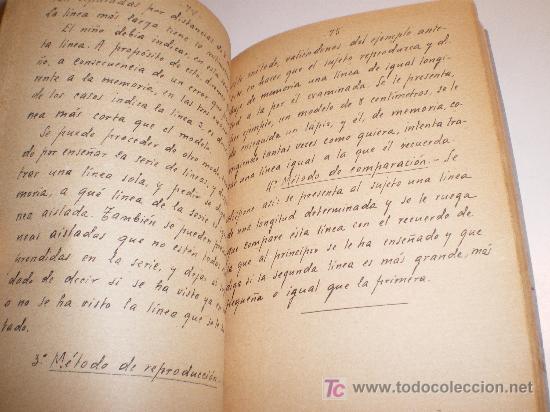 74
separadas por distancias de
la línea más larga tiene 10
El niño debía indicar, en
línea. A propósito de esto,
no, a consecuencia de un error que
ente a la memoria, en las tres
de los casos indica la línea 3,
nea más corta que el modelo.
Se puede proceder de otro modo,
do por enseñar la serie de líneas;
trar una línea sola, y pedir se diga
moria, a qué línea de la serie
nea aislada. También se pueden
neas aisladas que no estén
prendidas en la serie, y dejar al
dado de decir si se ha visto ya
o no se ha visto la línea que se le
tado.
3.º Método de reproducción.
75
método, valiéndonos del ejemplo ante-
es hacer que el sujeto reproduzca y di-
de memoria una línea de igual longi-
a la por él examinada. Se le presenta,
ejemplo, un modelo de 8 centímetros, se le
un lápiz, y él, de memoria, co-
tantas veces como quiera, intenta tra-
una línea igual a la que él recuerda.
4º Método de comparación.- Se
así: se presenta al sujeto una línea
de una longitud determinada y se le ruega
que compare ésta línea con el recuerdo de
que al principio se le ha enseñado y que
diga si la segunda línea es más grande, más
pequeña o igual que la primera.
TC www.todocoleccion.net